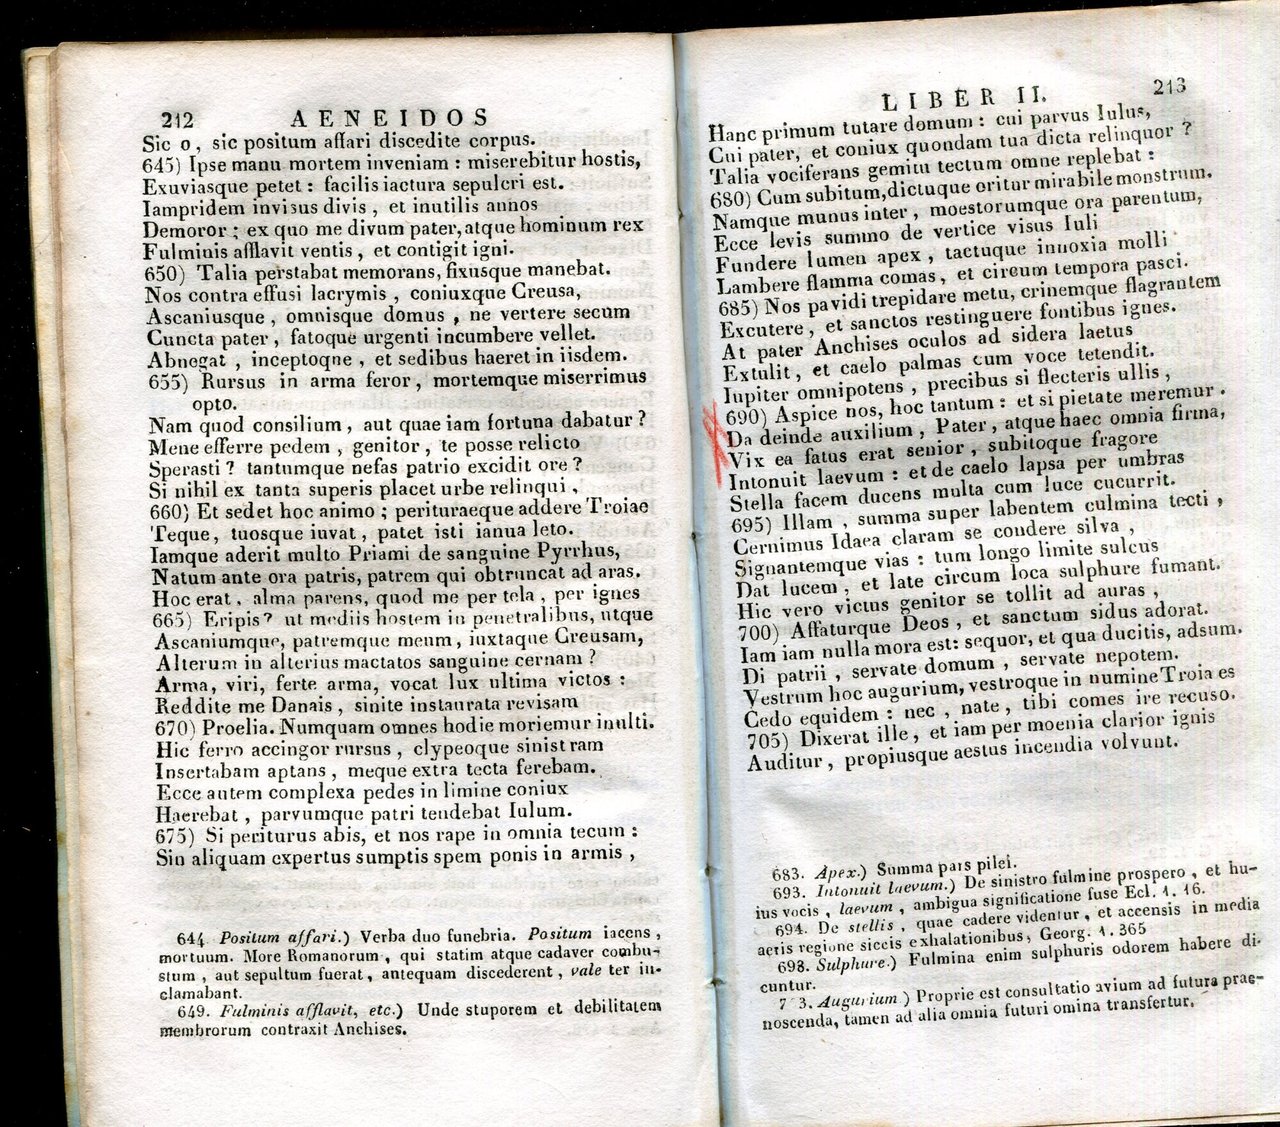 212 AENEIDOS
Sic o, sic positum affari discedite corpus.
645) Ipse manu mortem inveniam : miserebitur hostis,
Exuviasque petet : facilis iactura sepulcri est.
Iampridem invisus divis , et inutilis annos
Demoror ; ex quo me divum pater, atque hominum rex
Fulminis afflavit ventis , et contigit igni.
650) Talia perstabat memorans, fixusque manebat.
Nos contra effusi lacrymis , coniuxque Creusa,
Ascaniusque , omnisque domus , ne vertere secum
Cuncta pater , fatoque urgenti incumbere vellet.
Abnegat , inceptoqne , et sedibus haeret in iisdem.
655) Rursus in arma feror , mortemque miserrimus
opto.
Nam quod consilium , aut quae iam fortuna dabatur ?
Mene efferre pedem , genitor , te posse relicto
Sperasti ? tantumque nefas patrio excidit ore ?
Si nihil ex tanta superis placet urbe relinqui ,
660) Et sedet hoc animo ; perituraeque addere Troiae
Teque, tuosque iuvat, patet isti ianua leto.
Iamque aderit multo Priami de sanguine Pyrrhus,
Natum ante ora patris, patrem qui obtruncat ad aras.
Hoc erat, alma parens, quod me per tela , per ignes
665) Eripis? ut mediis hostem in penetralibus, utque
Ascaniumque, patremque meum, iuxtaque Creusam,
Alterum in alterius mactatos sanguine cernam ?
Arma, viri, ferte arma, vocat lux ultima victos :
Reddite me Danais , sinite instaurata revisam
670) Proelia. Numquam omnes hodie moriemur inulti.
Hic ferro accingor rursus , clypeoque sinistram
Insertabam aptans , meque extra tecta ferebam.
Ecce autem complexa pedes in limine coniux
Haerebat , parvumque patri tendebat Iulum.
675) Si periturus abis, et nos rape in omnia tecum :
Sin aliquam expertus sumptis spem ponis in armis ,
644. Positum affari.) Verba duo funebria. Positum iacens ,
mortuum. More Romanorum , qui statim atque cadaver combu-
stum , aut sepultum fuerat , antequam discederent , vale ter in-
clamabant.
649. Fulminis afflavit, etc.) Unde stuporem et debilitatem
membrorum contraxit Anchises.
LIBER II. 213
Hanc primum tutare domum : cui parvus Iulus,
Cui pater, et coniux quondam tua dicta relinquor ?
Talia vociferans gemitu tectum omne replebat :
680) Cum subitum, dictuque oritur mirabile monstrum.
Namque manus inter , moestorumque ora parentum,
Ecce levis summo de vertice visus Iuli
Fundere lumen apex , tactuque innoxia molli
Lambere flamma comas, et circum tempora pasci.
685) Nos pavidi trepidare metu, crinemque flagrantem
Excutere , et sanctos restinguere fontibus ignes.
At pater Anchises oculos ad sidera laetus
Extulit , et caelo palmas cum voce tetendit.
Iupiter omnipotens , precibus si flecteris ullis ,
690) Aspice nos, hoc tantum : et si pietate meremur .
Da deinde auxilium , Pater , atque haec omnia firma,
Vix ea fatus erat senior , subitoque fragore
Intonuit laevum : et de caelo lapsa per umbras
Stella facem ducens multa cum luce cucurrit.
695) Illam , summa super labentem culmina tecti ,
Cernimus Idaea claram se condere silva ,
Signantemque vias : tum longo limite sulcus
Dat lucem , et late circum loca sulphure fumant.
Hic vero victus genitor se tollit ad auras ,
700) Affaturque Deos , et sanctum sidus adorat.
Iam iam nulla mora est: sequor, et qua ducitis, adsum.
Di patrii , servate domum , servate nepotem.
Vestrum hoc augurium, vestroque in numine Troia es
Cedo equidem : nec , nate , tibi comes ire recuso.
705) Dixerat ille, et iam per moenia clarior ignis
Auditur , propiusque aestus incendia volvunt.
683. Apex.) Summa pars pilei.
693. Intonuit laevum.) De sinistro fulmine prospero , et hu-
ius vocis , laevum , ambigua significatione fuse Ecl. 1. 16.
694. De stellis , quae cadere videntur , et accensis in media
aeris regione siccis exhalationibus, Georg. 1. 365
698. Sulphure.) Fulmina enim sulphuris odorem habere di-
cuntur.
7 3. Augurium ) Proprie est consultatio avium ad futura prae-
noscenda, tamen ad alia omnia futuri omina transfertur.